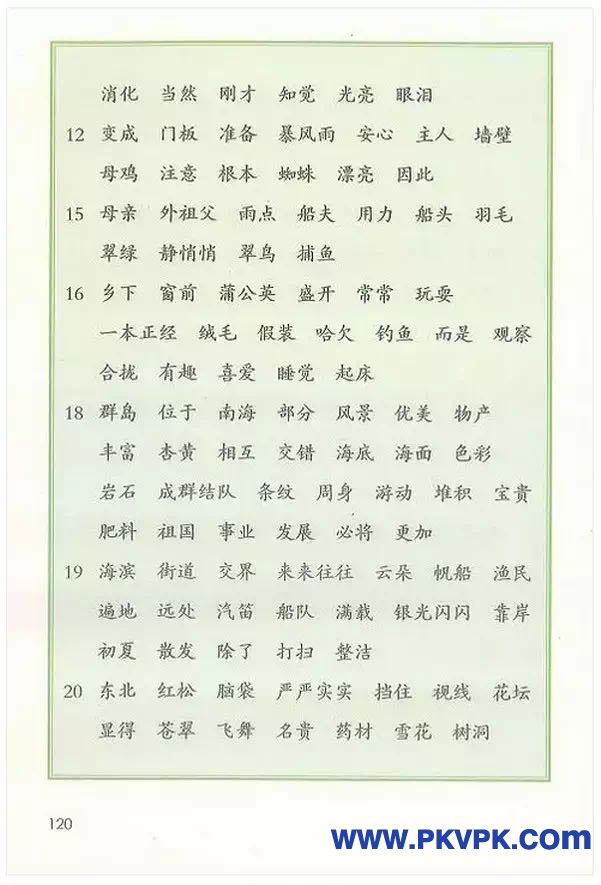 消化 当然 刚才 知觉 光亮 眼泪
12 变成 门板 准备 暴风雨 安心 主人 墙壁
母鸡 注意 根本 蜘蛛 漂亮 因此
15 母亲 外祖父 雨点 船夫 用力 船头 羽毛
翠绿 静悄悄 翠鸟 捕鱼
16 乡下 窗前 蒲公英 盛开 常常 玩耍
一本正经 绒毛 假装 哈欠 钓鱼 而是 观察
合拢 有趣 喜爱 睡觉 起床
18 群岛 位于 南海 部分 风景 优美 物产
丰富 杏黄 相互 交错 海底 海面 色彩
岩石 成群结队 条纹 周身 游动 堆积 宝贵
肥料 祖国 事业 发展 必将 更加
19 海滨 街道 交界 来来往往 云朵 帆船 渔民
遍地 远处 汽笛 船队 满载 银光闪闪 靠岸
初夏 散发 除了 打扫 整洁
20 东北 红松 脑袋 严严实实 挡住 视线 花坛
显得 苍翠 飞舞 名贵 药材 雪花 树洞
120
www.PKVPK.com